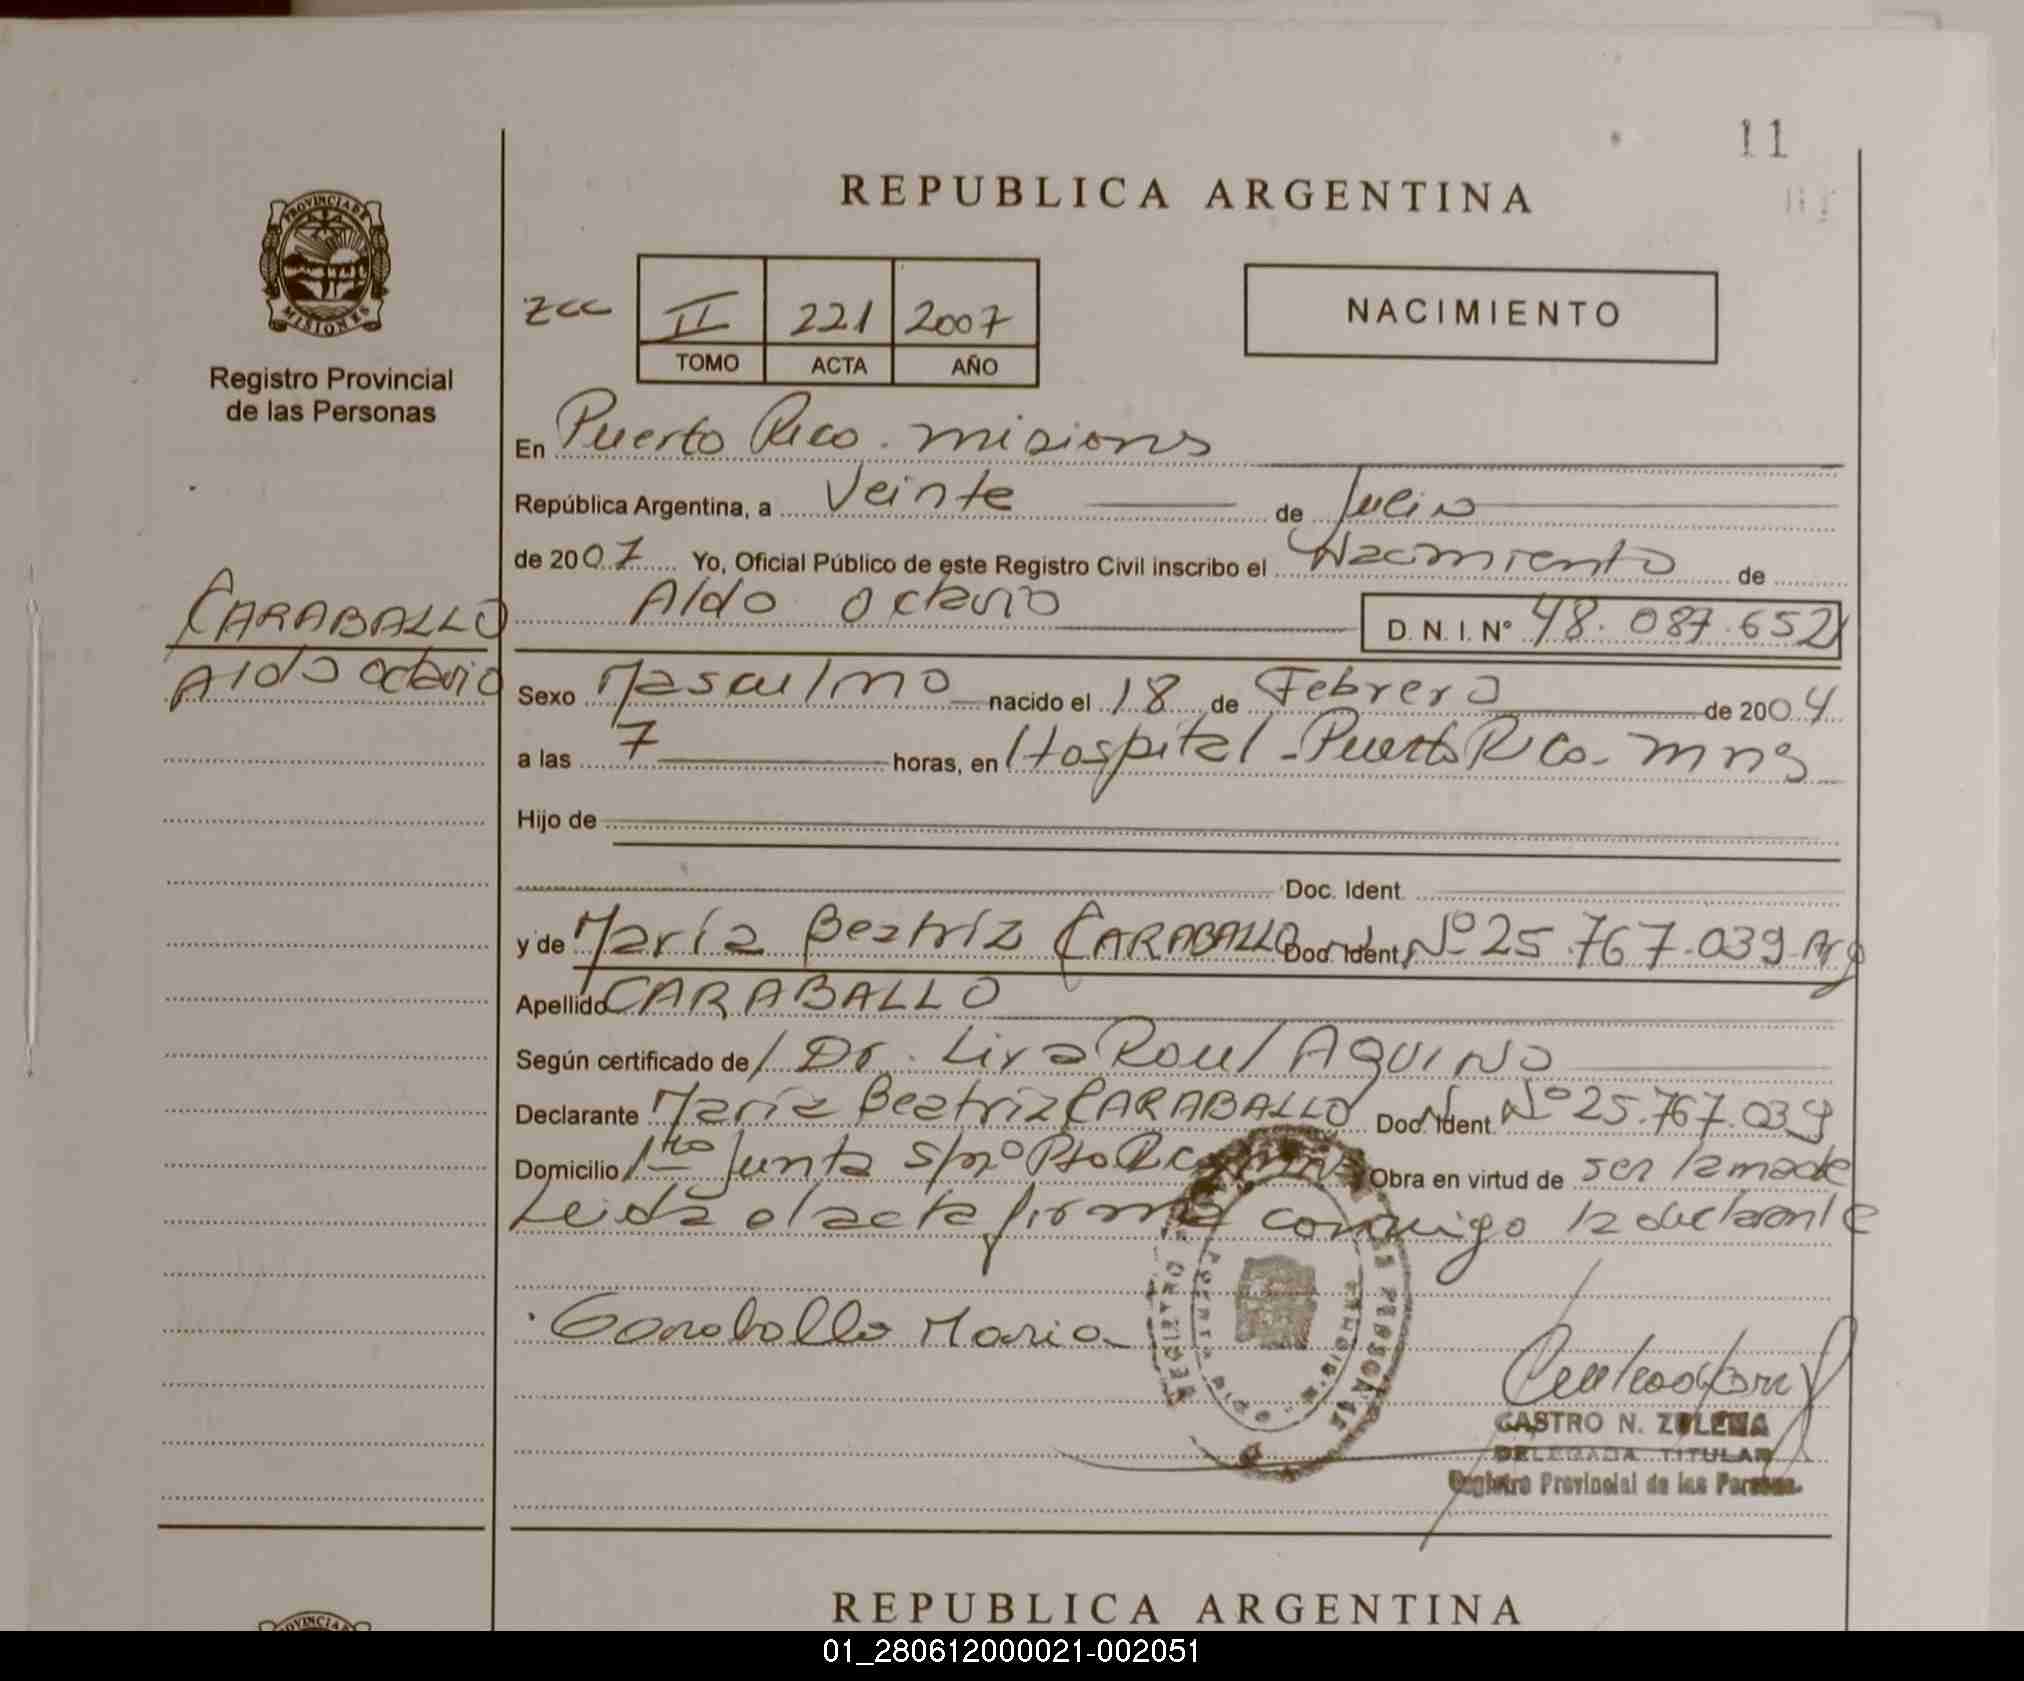 11
REPUBLICA ARGENTINA
PROVINCIA DE
MISIONES
Registro Provincial
de las Personas
zcc II 221 2007
TOMO ACTA AÑO
NACIMIENTO
En Puerto Rico. misiones
República Argentina, a Veinte de Julio
de 2007 Yo, Oficial Público de este Registro Civil inscribo el Nacimiento de
Aldo octavio D. N. I. Nº 48.087.652
CARABALLO
Aldo octavio
Sexo Masculino nacido el 18 de Febrero de 2004
a las 7 horas, en Hospital - Puerto Rico - mns
Hijo de
Doc. Ident.
y de María Beatríz CARABALLO Doc. Ident. Nº 25.767.039 Arg
Apellido CARABALLO
Según certificado de Dr. AQUINO
Declarante María Beatriz CARABALLO Doc. Ident. Nº 25.767.039
Domicilio 1ra Junta s/nº Pto Rico mns Obra en virtud de ser la madre
Leida el acta firma conmigo la declarante
Caraballo Maria
CASTRO N. ZULEMA
DELEGADA TITULAR
Registro Provincial de las Personas
REPUBLICA ARGENTINA
01_280612000021-002051